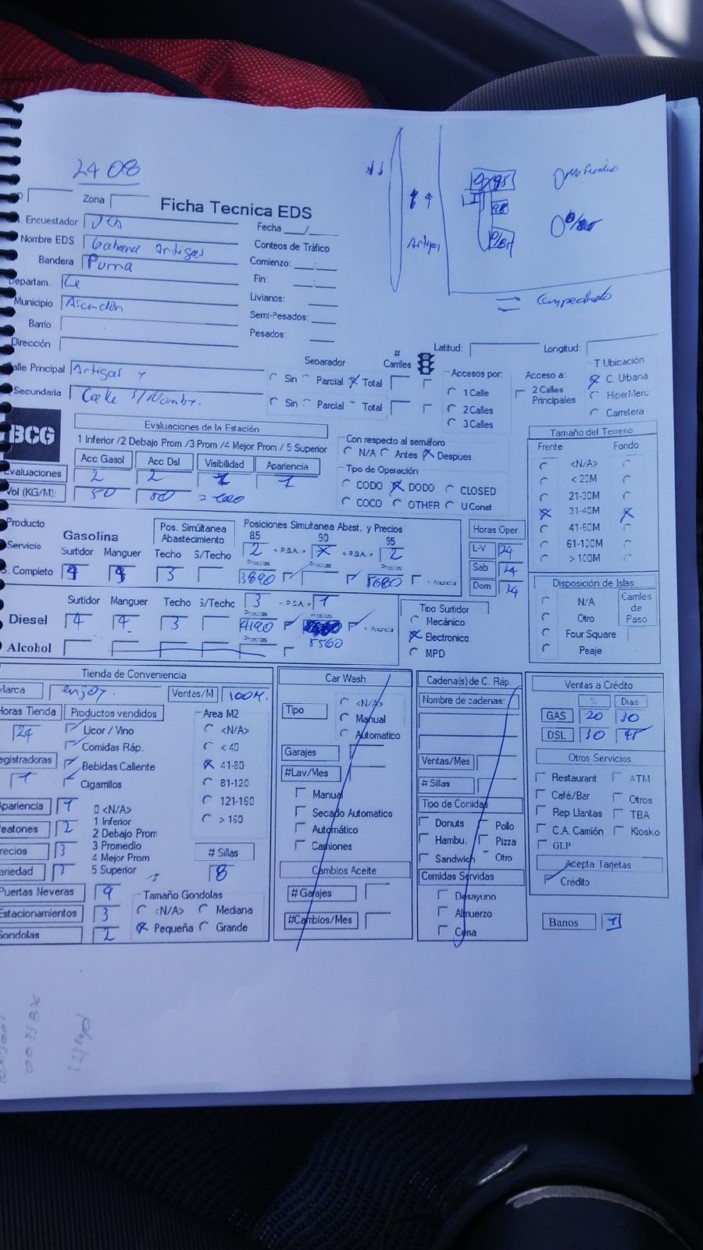 24 08
Zona
Ficha Tecnica EDS
Encuestador
Fecha
Nombre EDS Artigas
Conteos de Tráfico
Bandera Puma
Comienzo:
Departam.
Fin:
Municipio Asunción
Livianos:
Barrio
Semi-Pesados:
Dirección
Pesados:
Artigas
Latitud: Longitud:
Calle Principal Artigas y
Separador
# Carriles
Sin Parcial Total
Secundaria Calle S/Nombre.
Sin Parcial Total
Accesos por:
1 Calle
2 Calles
3 Calles
Acceso a:
2 Calles Principales
T Ubicación
C. Urbana
HiperMerc
Carretera
BCG
Evaluaciones de la Estación
1 Inferior /2 Debajo Prom /3 Prom /4 Mejor Prom / 5 Superior
Acc Gasol Acc Dsl Visibilidad Apariencia
Evaluaciones 2 2 1 1
Vol (KG/M):
Con respecto al semáforo
N/A Antes Despues
Tipo de Operación
CODO DODO CLOSED
COCO OTHER U Const
Tamaño del Terreno
Frente Fondo
<N/A>
< 20M
21-30M
31-40M
41-60M
61-100M
> 100M
Producto Gasolina
Pos. Simúltanea Abastecimiento
Posiciones Simultanea Abest. y Precios
85 90 95
Servicio Surtidor Manguer Techo S/Techo
2 2
S. Completo 3
3890 5680
Horas Oper
L-V 24
Sab 24
Dom 24
Surtidor Manguer Techo S/Techo
3 1
Diesel 4 4 3
4190
5560
Alcohol
Tipo Surtidor
Mecánico
Electronico
MPD
Disposición de Islas
N/A
Otro
Four Square
Peaje
Carriles de Paso
Tienda de Conveniencia
Marca enjoy. Ventas/M 100M.
Horas Tienda Productos vendidos
24
Licor / Vino
Comidas Ráp.
Registradoras Bebidas Caliente
1 Cigarrillos
Area M2
<N/A>
< 40
41-80
81-120
121-160
> 160
Apariencia 1
Peatones 2
Precios 3
Variedad
0 <N/A>
1 Inferior
2 Debajo Prom
3 Promedio
4 Mejor Prom
5 Superior
# Sillas
8
Puertas Neveras 9
Estacionamientos 3
Gondolas 2
Tamaño Gondolas
<N/A> Mediana
Pequeña Grande
Car Wash
Tipo
<N/A>
Manual
Automatico
Garajes
#Lav/Mes
Manual
Secado Automatico
Automático
Camiones
Cambios Aceite
# Garajes
#Cambios/Mes
Cadena(s) de C. Ráp.
Nombre de cadenas:
Ventas/Mes
# Sillas
Tipo de Comidas
Donuts Pollo
Hambu. Pizza
Sandwich Otro
Comidas Servidas
Desayuno
Almuerzo
Cena
Ventas a Crédito
% Dias
GAS 20 30
DSL 30 45
Otros Servicios
Restaurant ATM
Café/Bar Otros
Rep Llantas TBA
C.A. Camión Kiosko
GLP
Acepta Tarjetas
Crédito
Banos 1